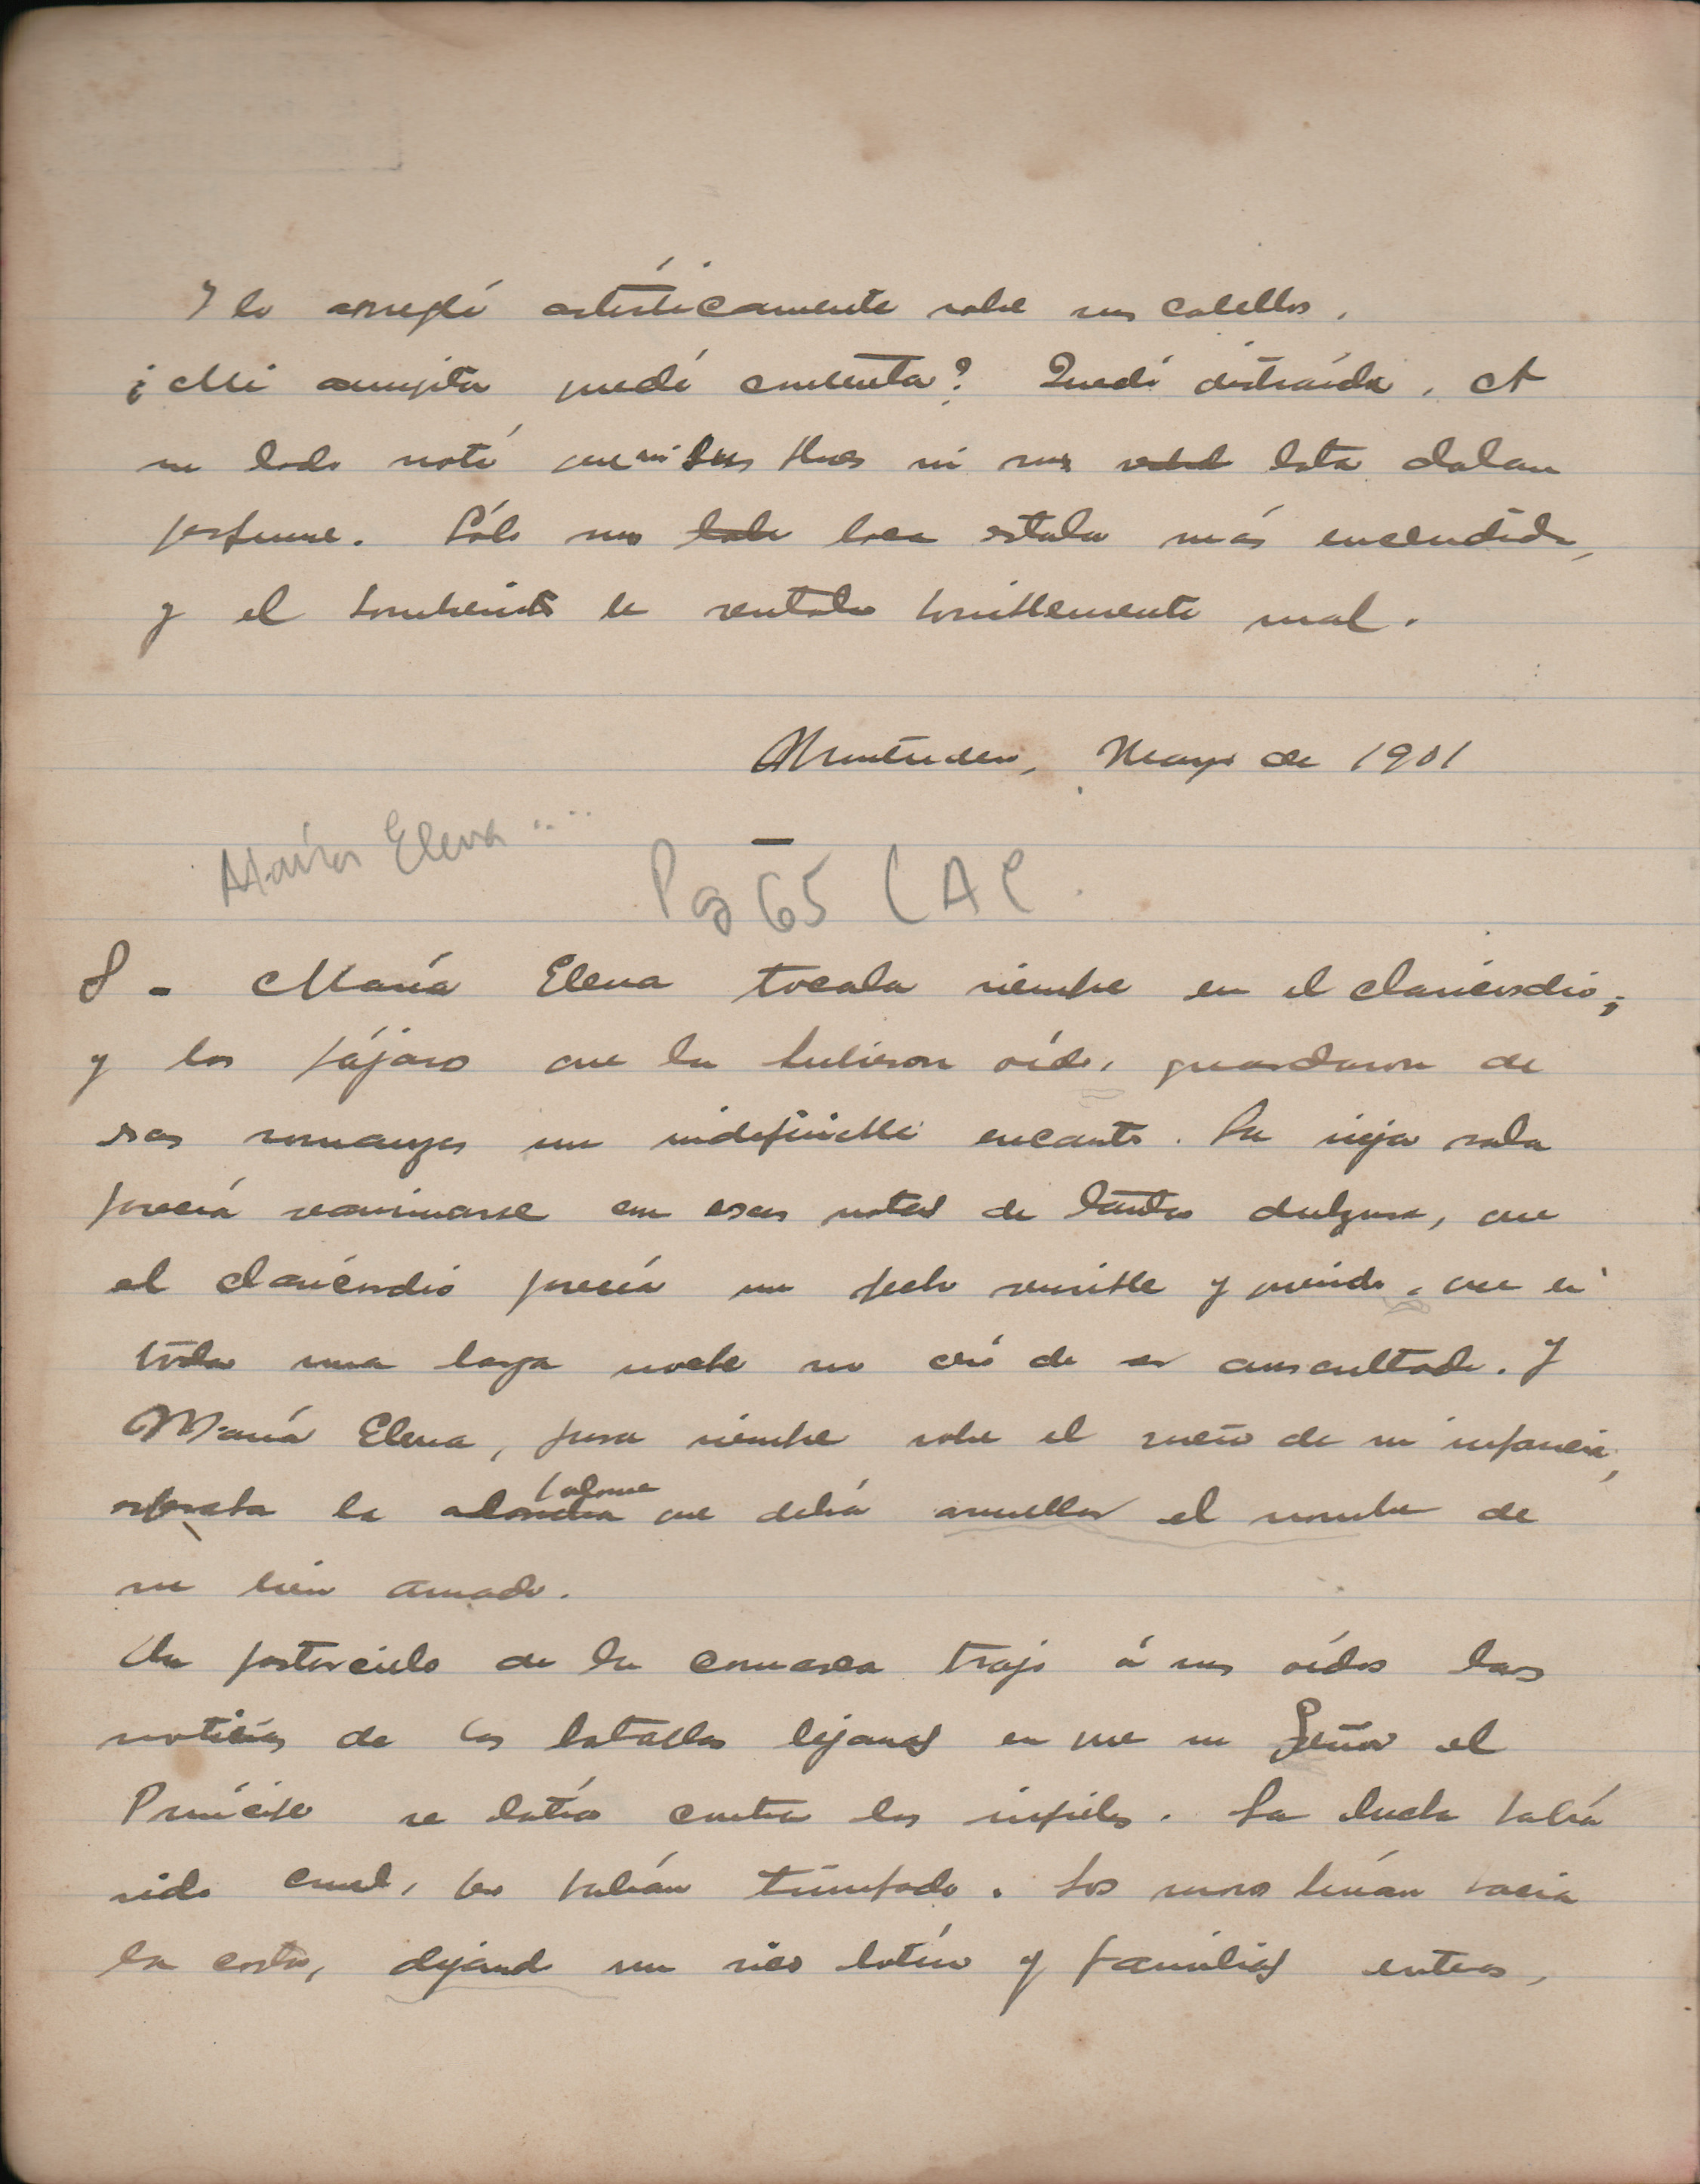 Y lo arreglé artísticamente sobre sus cabellos.
¿Mi amiguita quedó contenta? Quedó distraída. A
su lado noté que ni sus flores ni sus bata daban
perfume. Sólo su boca estaba más encendida,
y el sombrerito le sentaba horriblemente mal.
Montevideo, Mayo de 1901
—
María Elena ....
Pag 65 CAC.
8 - María Elena tocaba siempre en el clavicordio;
y los pájaros que la hubieron oído, guardaron de
esas romanzas un indefinible encanto. La vieja sala
parecía reanimarse con esas notas de tanta dulzura, que
el clavicordio parecía un pecho sensible y querido, que en
toda una larga noche no cesó de ser auscultado. Y
María Elena, pura siempre sobre el sueño de su infancia,
esperaba la alondra paloma que debía arrullar el nombre de
su bien amado.
Un pastorcillo de la comarca trajo á sus oídos las
noticias de las batallas lejanas en que su Señor el
Príncipe se batía contra los infieles. La lucha había
sido cruel, pero habían triunfado. Los moros huían hacia
la costa, dejando un rico botín y familias enteras,